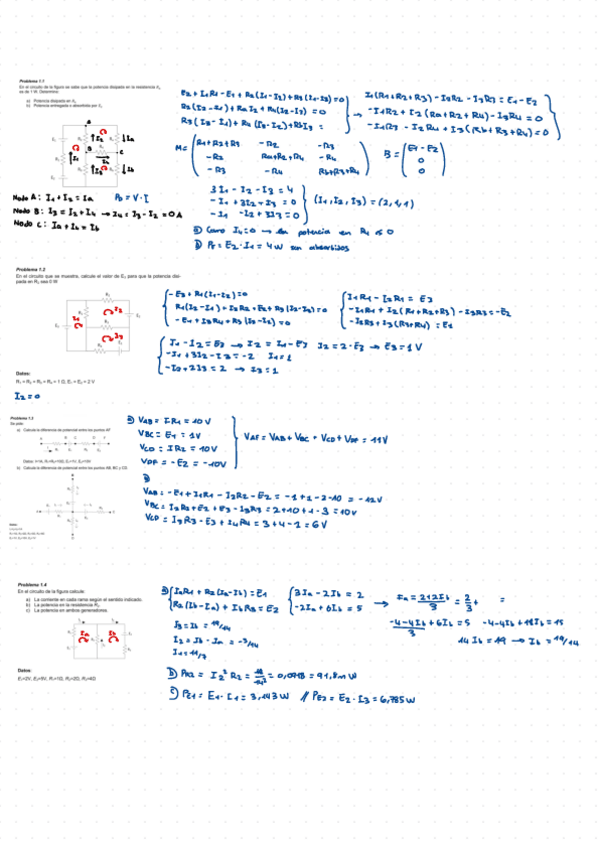 Problema 1.1
En el circuito de la figura se sabe que la potencia disipada en la resistencia
es de 1 W. Determine:
a) Potencia disipada en
b) Potencia entregada o absorbida por
E2 + I1R1 - E1 + R2(I1-I2) + R3(I1-I3) = 0
R2(I2-I1) + RaI2 + R4(I2-I3) = 0
R3(I3-I1) + R4(I3-I2) + RbI3 =
I1(R1+R2+R3) - I2R2 - I3R3 = E1-E2
-I1R2 + I2(Ra+R2+R4) - I3R4 = 0
-I1R3 - I2R4 + I3(Rb+R3+R4) = 0
M = R1+R2+R3 -R2 -R3
-R2 Ra+R2+R4 -R4
-R3 -R4 Rb+R3+R4
B = E1-E2
0
0
Nodo A: I1 + I2 = Ia
P = V·I
Nodo B: I3 = I2 + I4 → I4 = I3 - I2 = 0 A
Nodo C: Ia + I4 = Ib
3I1 - I2 - I3 = 4
-I1 + 3I2 - I3 = 0
-I1 - I2 + 3I3 = 0
(I1, I2, I3) = (2,1,1)
a) Como I4=0 → la potencia en R4 es 0
b) P = E2·I1 = 4W son absorbidos
Problema 1.2
En el circuito que se muestra, calcule el valor de E3 para que la potencia disi-
pada en R2 sea 0 W
-E3 + R1(I1-I2) = 0
R1(I2-I1) + I2R2 + E2 + R3(I2-I3) = 0
-E1 + I3R4 + R3(I3-I2) = 0
I1R1 - I2R1 = E3
-I1R1 + I2(R1+R2+R3) - I3R3 = -E2
-I2R3 + I3(R3+R4) = E1
I1 - I2 = E3 → I2 = I1 - E3 I2 = 2 · E3 → E3 = 1V
-I1 + 3I2 - I3 = -2 I1 = 1
-I2 + 2I3 = 2 → I3 = 1
Datos:
R1 = R2 = R3 = R4 = 1 Ω, E1 = E2 = 2 V
I2 = 0
Problema 1.3
Se pide:
a) Calcule la diferencia de potencial entre los puntos AF
b) Calcule la diferencia de potencial entre los puntos AB, BC y CD
a) VAB = IR1 = 10V
VBC = E1 = 1V
VCD = IR2 = 10V
VDF = -E2 = -10V
VAF = VAB + VBC + VCD + VDF = 11V
b)
VAB = -E1 + I1R1 - I2R2 - E2 = -1+1-2-10 = -12V
VBC = I2R2 + E2 + E3 - I3R3 = 2+10+1-3 = 10V
VCD = I3R3 - E3 + I4R4 = 3+4-1 = 6V
Problema 1.4
En el circuito de la figura calcule:
a) La corriente en cada ramo según el sentido indicado.
b) La potencia en la resistencia R2.
c) La potencia en ambos generadores.
a) IaR1 + R2(Ia-Ib) = E1
R2(Ib-Ia) + IbR3 = E2
3Ia - 2Ib = 2
-2Ia + 6Ib = 5
→ Ia = 2+2Ib/3 = 2/3 +
=
-4-4Ib/3 + 6Ib = 5 -4-4Ib + 18Ib = 15
14Ib = 19 → Ib = 19/14
I3 = Ib = 19/14
I2 = Ib - Ia = -3/14
I1 = 11/7
Datos:
E1=2V, E2=5V, R1=1Ω, R2=2Ω, R3=4Ω
b) PR2 = I2² R2 = 18/14² = 0,0918 = 91,8mW
c) PE1 = E1·I1 = 3,143W // PE2 = E2·I3 = 6,785W